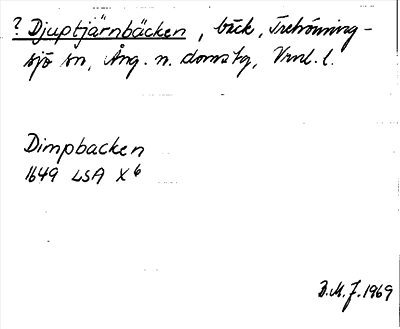 ? Djuptjärnbäcken, bäck, Trehörning-
sjö sn, Ång. n. domsby, Vrml. l.
Dimpbacken
1649 LSA X6
B.M.J. 1969